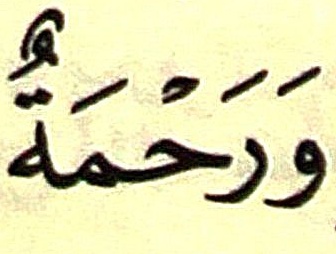 وَرَحْمَةٌ